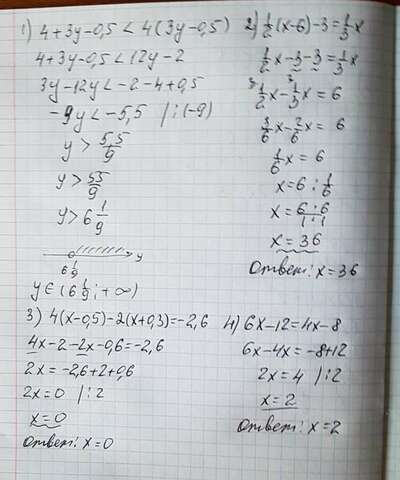 1) 4+3y-0,5 < 4(3y-0,5)
4+3y-0,5 < 12y-2
3y-12y < -2-4+0,5
-9y < -5,5 / :(-9)
y > 5,5/9
y > 55/9
y > 6 1/9
6 1/9 y
y ∈ (6 1/9; +∞)
2) 1/2(x-6)-3=1/3x
1/2x-3-3=1/3x
3 1/2x- 2 1/3x = 6
3/6x-2/6x = 6
1/6x = 6
x=6 : 1/6
x = 6·6/1·1
x = 36
Ответ: x=36
3) 4(x-0,5)-2(x+0,3)=-2,6
4x-2-2x-0,6=-2,6
2x=-2,6+2+0,6
2x=0 / :2
x=0
Ответ: x=0
4) 6x-12=4x-8
6x-4x=-8+12
2x=4 / :2
x=2
Ответ: x=2